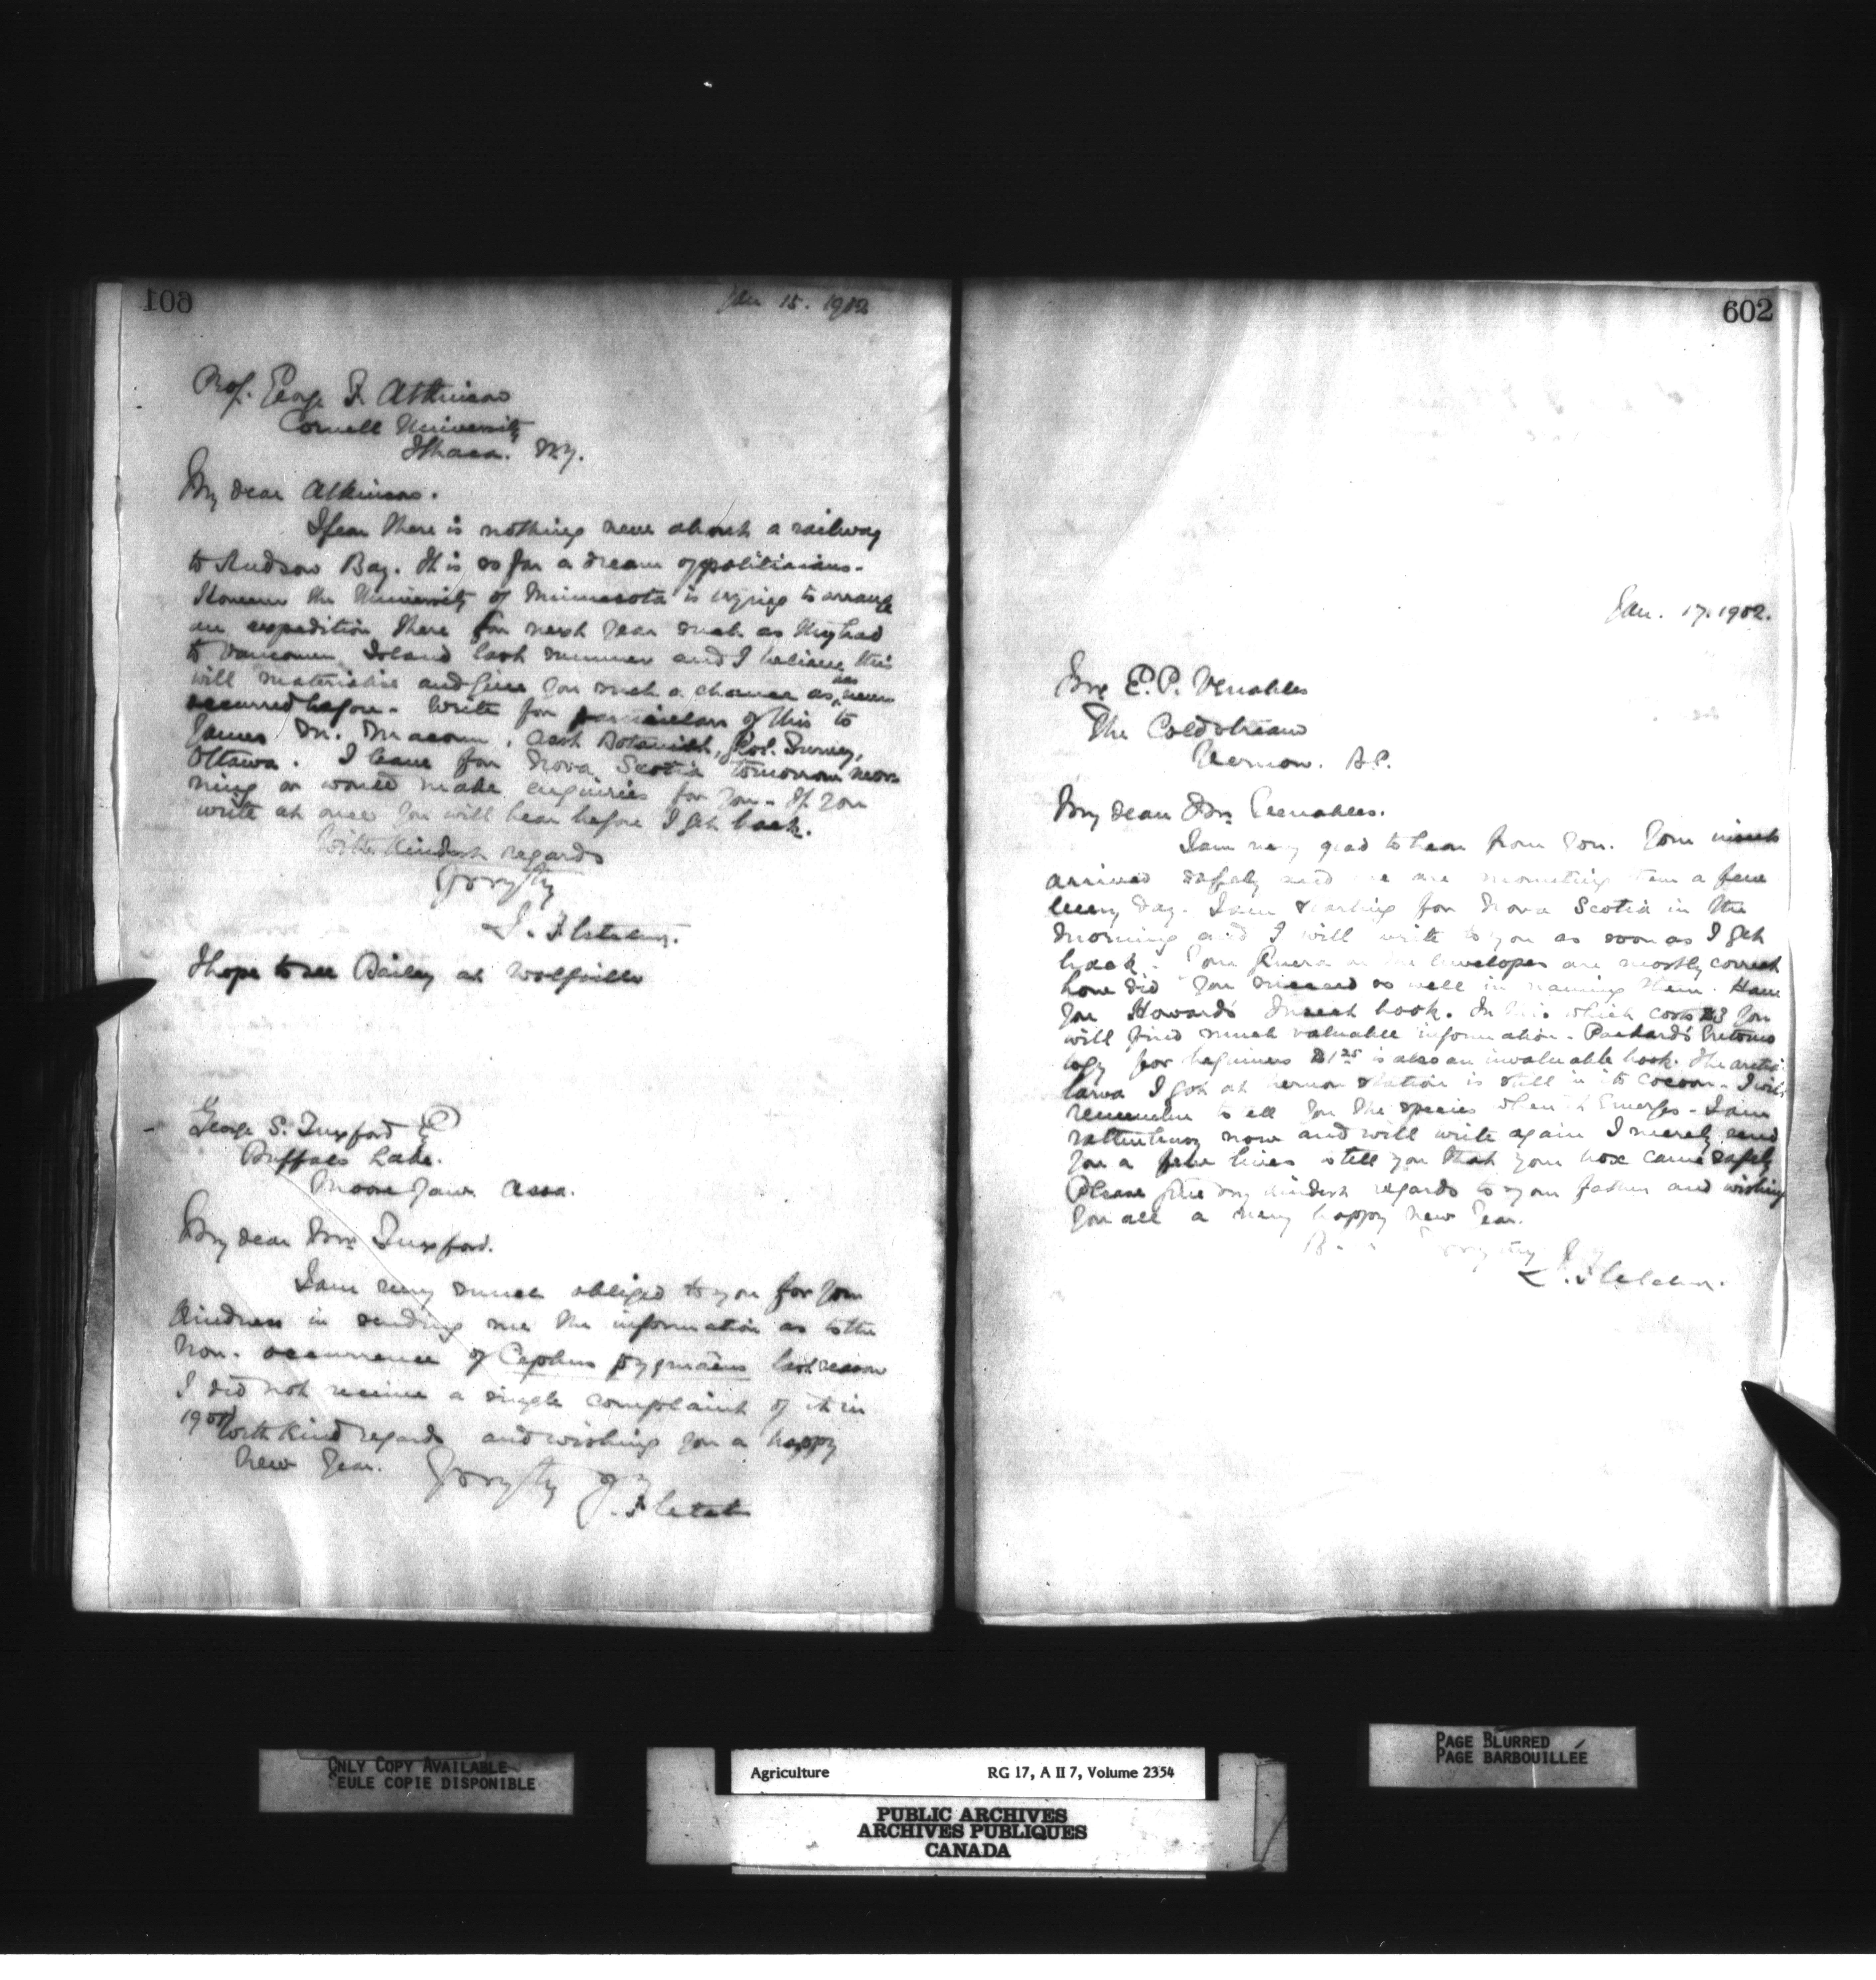 601
Jan 15. 1902
Prof. George F. Atkinson
Cornell University
Ithaca. N.Y.
My dear Atkinson.
I fear there is nothing new about a railway
to Hudson Bay. It is so far a dream of politicians.
However the University of Minnesota is trying to arrange
an expedition there for next year such as they had
to Vancouver Island last summer and I believe this
will materialise and give you such a chance as has never
occurred before. Write for particulars of this to
James M. Macoun, Asst Botanist, Geol. Survey,
Ottawa. I leave for Nova Scotia tomorrow mor-
ning or would make enquiries for you. If you
write at once you will hear before I get back.
With kindest regards
J. Fletcher.
I hope to see Bailey at Wolfville
George S. Tuxford Esq
Buffalo Lake.
Moose Jaw. Assa.
My dear Mr. Tuxford.
I am very much obliged to you for your
kindness in sending me the information as to the
non-occurrence of Cephus pygmaeus last season
I did not receive a single complaint of it in
1901 With kind regards and wishing you a happy
New Year.
J. Fletcher
602
Jan. 17. 1902.
Mr. E. P. Venables
The Coldstream
Vernon. B.C.
My dear Mr. Venables.
I am very glad to hear from you. Your insects
arrived safely and we are mounting them a few
every day. I am starting for Nova Scotia in the
morning and I will write to you as soon as I get
back. Your genera on the envelopes are mostly correct
how did you succeed so well in naming them. Have
you Howard's Insect book. In this which costs $3 you
will find much valuable information. Packard's Entomo
logy for beginners $1.25 is also an invaluable book. The arctia
larva I got at Vernon station is still in its cocoon. I will
remember to tell you the species when it emerges. I am
rather busy now and will write again I merely send
you a few lines to tell you that your box came safely
Please give my kindest regards to your father and wishing
you all a very happy New Year.
J. Fletcher.
ONLY COPY AVAILABLE
SEULE COPIE DISPONIBLE
Agriculture RG 17, A II 7, Volume 2354
PUBLIC ARCHIVES
ARCHIVES PUBLIQUES
CANADA
PAGE BLURRED
PAGE BARBOUILLÉE